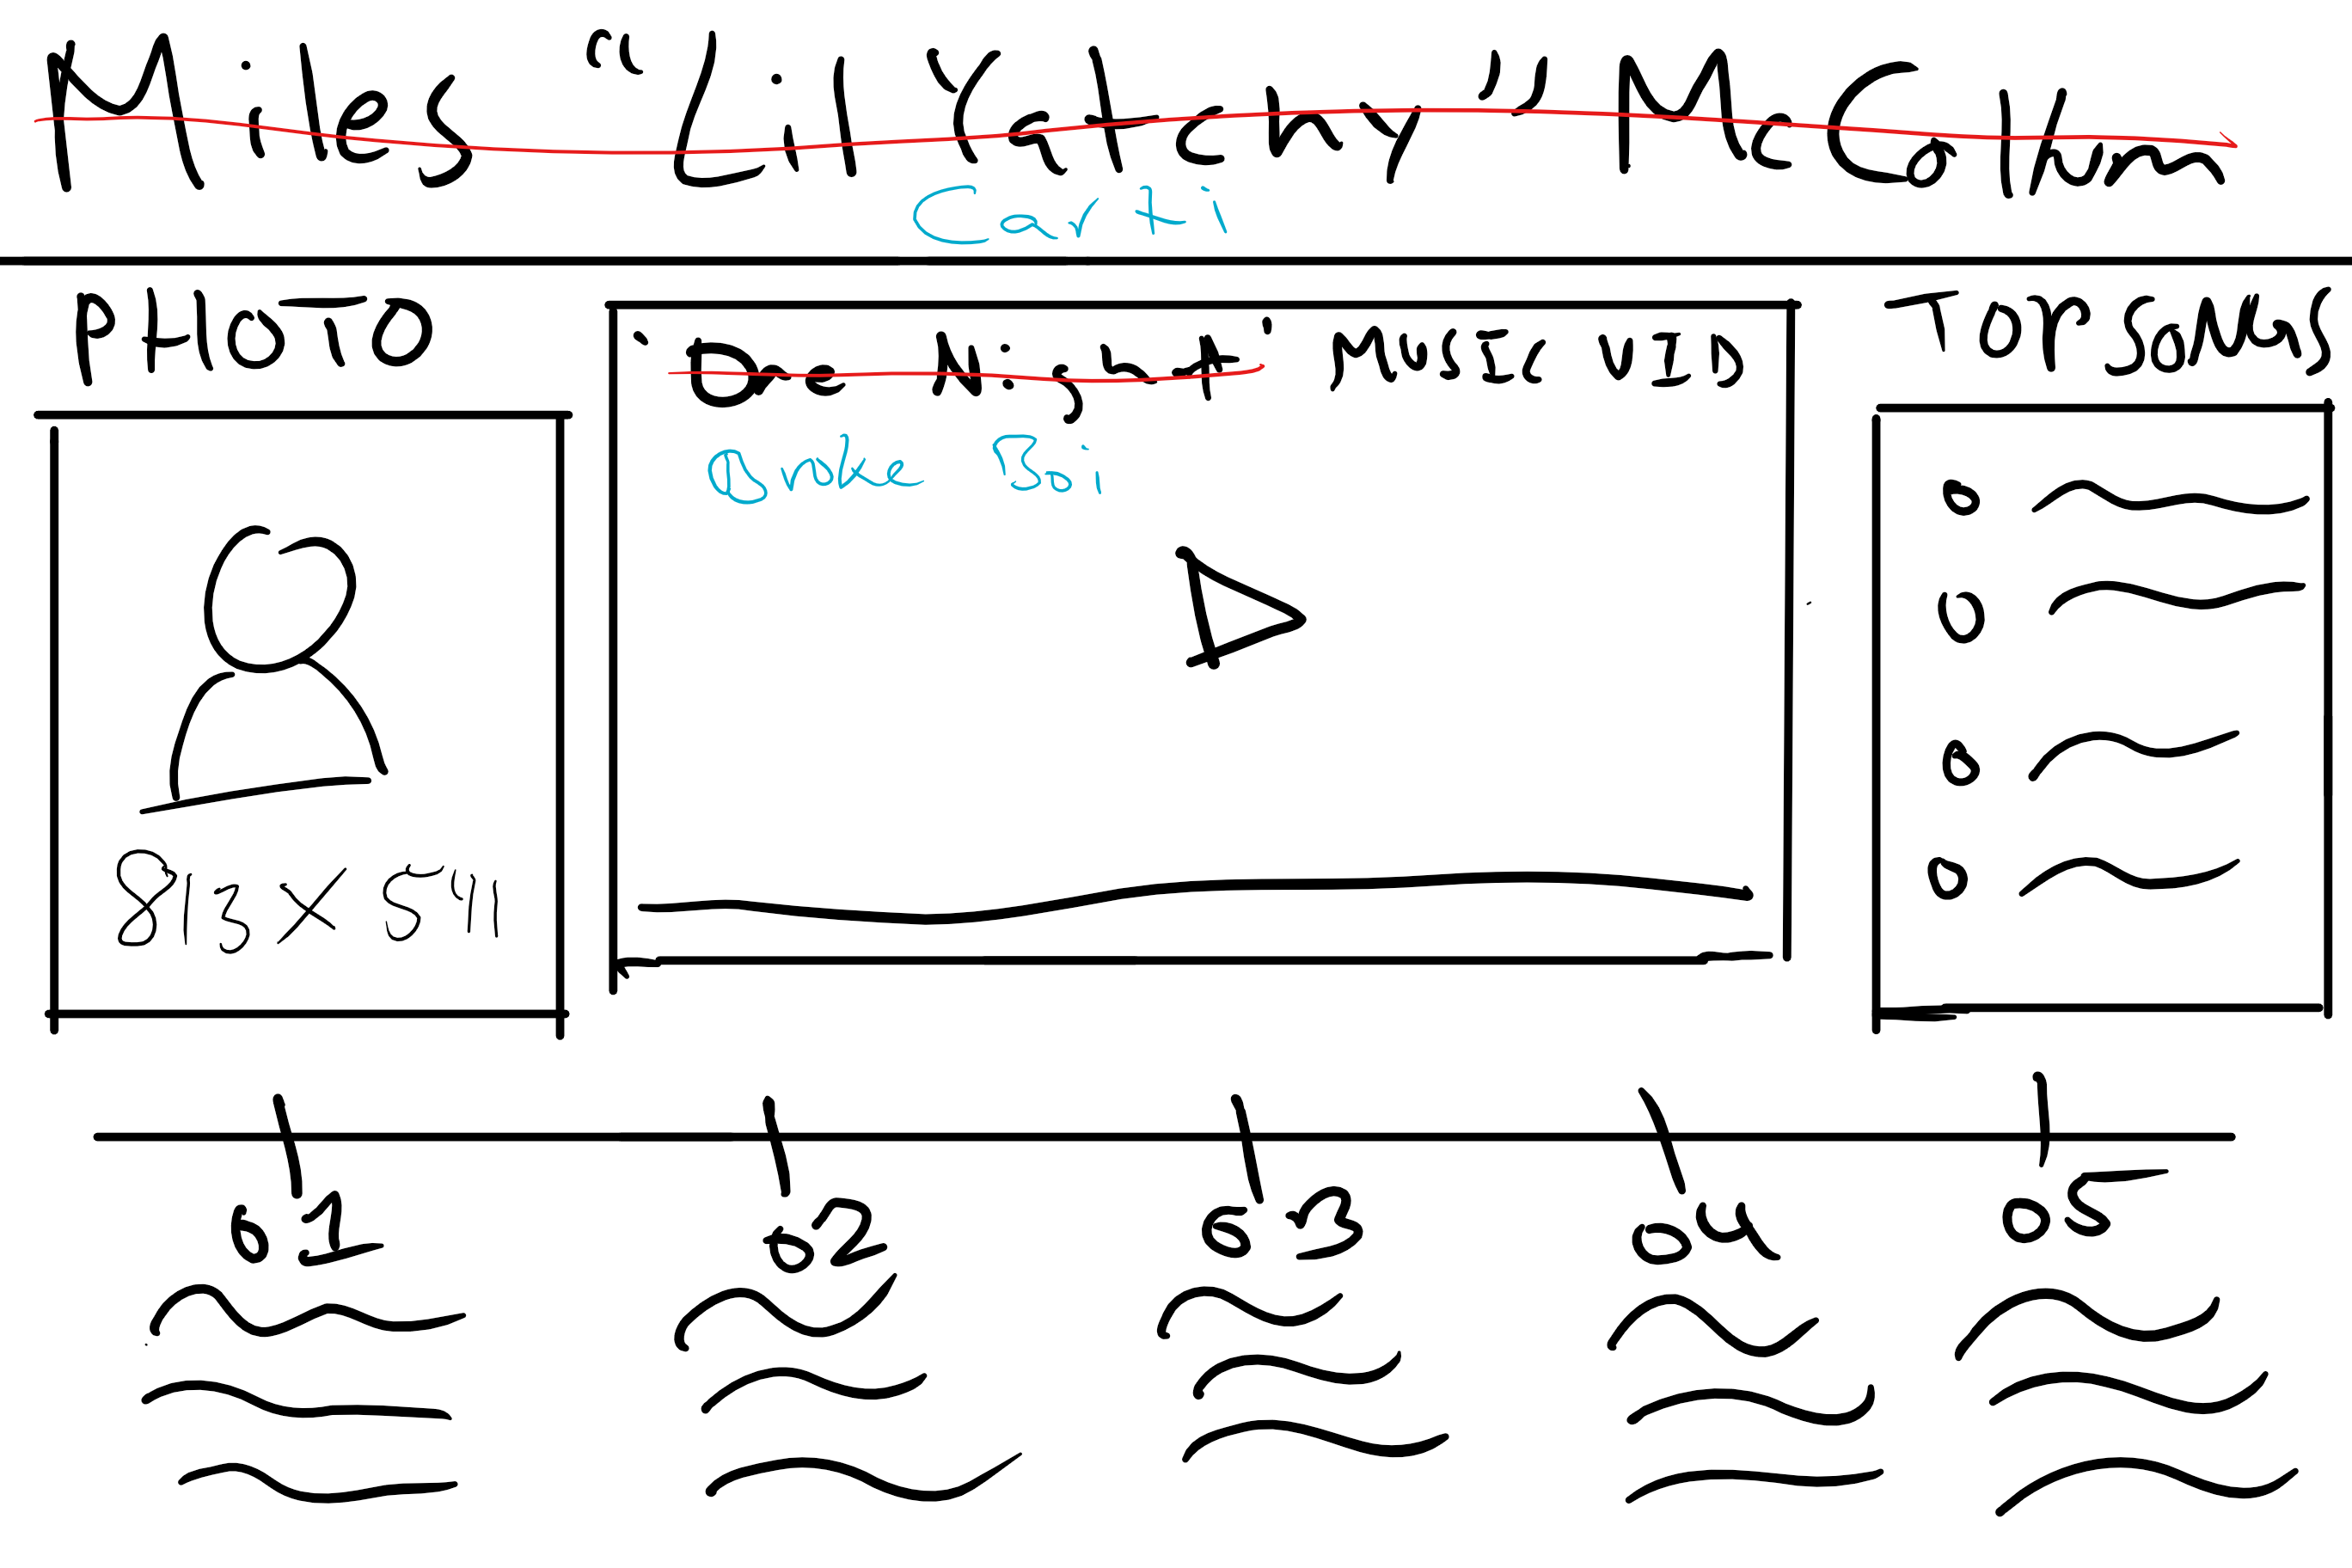 Miles "Lil Yatchy" McCollum
Carti
PHOTO
"One Night" MUSIC VID
Broke Boi
TOP SONGS
913 X 541
01
02
03
04
05